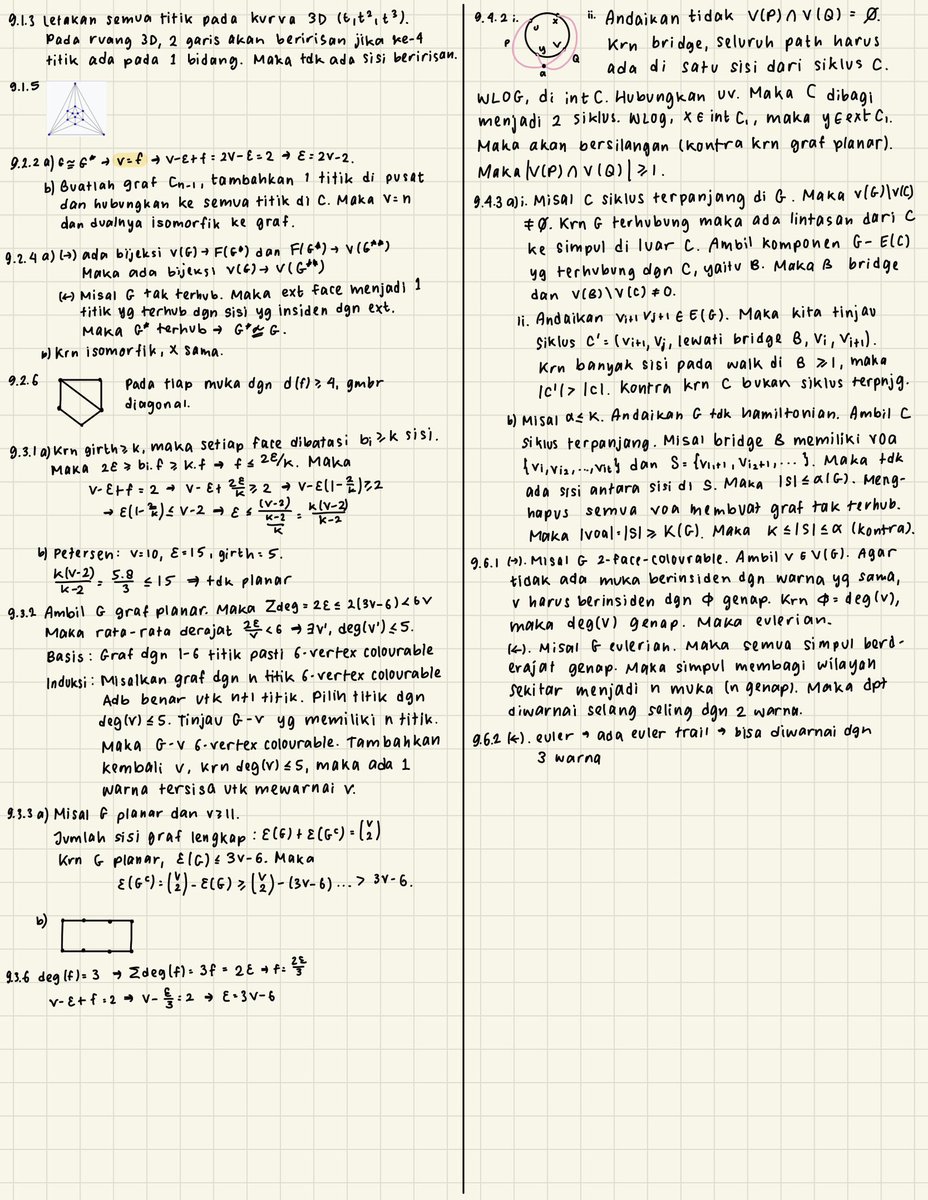 9.1.3 Letakan semua titik pada kurva 3D (t, t², t³).
Pada ruang 3D, 2 garis akan beririsan jika ke-4
titik ada pada 1 bidang. Maka tdk ada sisi beririsan.
9.1.5
9.2.2 a) G ≅ G* → v=f → v-ε+f = 2v-ε = 2 → ε = 2v-2.
b) Buatlah graf Cn-1, tambahkan 1 titik di pusat
dan hubungkan ke semua titik di C. Maka v=n
dan dualnya isomorfik ke graf.
9.2.4 a) (→) ada bijeksi V(G) → F(G*) dan F(G*) → V(G**)
Maka ada bijeksi V(G) → V(G**)
(←) Misal G tak terhub. Maka ext face menjadi 1
titik yg terhub dgn sisi yg insiden dgn ext.
Maka G* terhub → G** ≇ G.
b) Krn isomorfik, X sama.
9.2.6 Pada tiap muka dgn d(f) ≥ 4, gmbr
diagonal.
9.3.1 a) Krn girth ≥ k, maka setiap face dibatasi bi ≥ k sisi.
Maka 2ε ≥ bi.f ≥ k.f → f ≤ 2ε/k. Maka
v-ε+f = 2 → v-ε+ 2ε/k ≥ 2 → v-ε(1-2/k) ≥ 2
→ ε(1-2/k) ≤ v-2 → ε ≤ (v-2)/((k-2)/k) = k(v-2)/(k-2)
b) Petersen: v=10, ε=15, girth=5.
k(v-2)/(k-2) = 5.8/3 ≤ 15 → tdk planar
9.3.2 Ambil G graf planar. Maka Σdeg = 2ε ≤ 2(3v-6) < 6v
Maka rata-rata derajat 2ε/v < 6 → ∃v', deg(v') ≤ 5.
Basis: Graf dgn 1-6 titik pasti 6-vertex colourable
Induksi: Misalkan graf dgn n titik 6-vertex colourable
Adb benar utk n+1 titik. Pilih titik dgn
deg(v) ≤ 5. Tinjau G-v yg memiliki n titik.
Maka G-v 6-vertex colourable. Tambahkan
kembali v, krn deg(v) ≤ 5, maka ada 1
warna tersisa utk mewarnai v.
9.3.3 a) Misal G planar dan v≥11.
Jumlah sisi graf lengkap: ε(G) + ε(Gᶜ) = (v 2)
Krn G planar, ε(G) ≤ 3v-6. Maka
ε(Gᶜ) = (v 2) - ε(G) ≥ (v 2) - (3v-6) ... > 3v-6.
b)
9.3.6 deg(f) = 3 → Σdeg(f) = 3f = 2ε → f = 2ε/3
v-ε+f = 2 → v- ε/3 = 2 → ε = 3v-6
9.4.2 i. u x P y v Q a
ii. Andaikan tidak V(P) ∩ V(Q) = Ø.
Krn bridge, seluruh path harus
ada di satu sisi dari siklus C.
WLOG, di int C. Hubungkan uv. Maka C dibagi
menjadi 2 siklus. WLOG, x ∈ int C₁, maka y ∈ ext C₁.
Maka akan bersilangan (kontra krn graf planar).
Maka |V(P) ∩ V(Q)| ≥ 1.
9.4.3 a) i. Misal C siklus terpanjang di G. Maka V(G)\V(C)
≠ Ø. Krn G terhubung maka ada lintasan dari C
ke simpul di luar C. Ambil komponen G - E(C)
yg terhubung dgn C, yaitu B. Maka B bridge
dan V(B)\V(C) ≠ 0.
ii. Andaikan vi+1 vj+1 ∈ E(G). Maka kita tinjau
siklus C' = (vi+1, vj, lewati bridge B, vi, vi+1).
Krn banyak sisi pada walk di B ≥ 1, maka
|C'| > |C|. Kontra krn C bukan siklus terpnjg.
b) Misal α ≤ K. Andaikan G tdk hamiltonian. Ambil C
siklus terpanjang. Misal bridge B memiliki voa
{vi1, vi2, ..., vit} dan S = {vi1+1, vi2+1, ...}. Maka tdk
ada sisi antara sisi di S. Maka |S| ≤ α(G). Meng-
hapus semua voa membuat graf tak terhub.
Maka |voa| = |S| ≥ K(G). Maka K ≤ |S| ≤ α (kontra).
9.6.1 (→). Misal G 2-face-colourable. Ambil v ∈ V(G). Agar
tidak ada muka berinsiden dgn warna yg sama,
v harus berinsiden dgn Φ genap. Krn Φ = deg(v),
maka deg(v) genap. Maka eulerian.
(←). Misal G eulerian. Maka semua simpul berd-
erajat genap. Maka simpul membagi wilayah
sekitar menjadi n muka (n genap). Maka dpt
diwarnai selang seling dgn 2 warna.
9.6.2 (←). euler → ada euler trail → bisa diwarnai dgn
3 warna